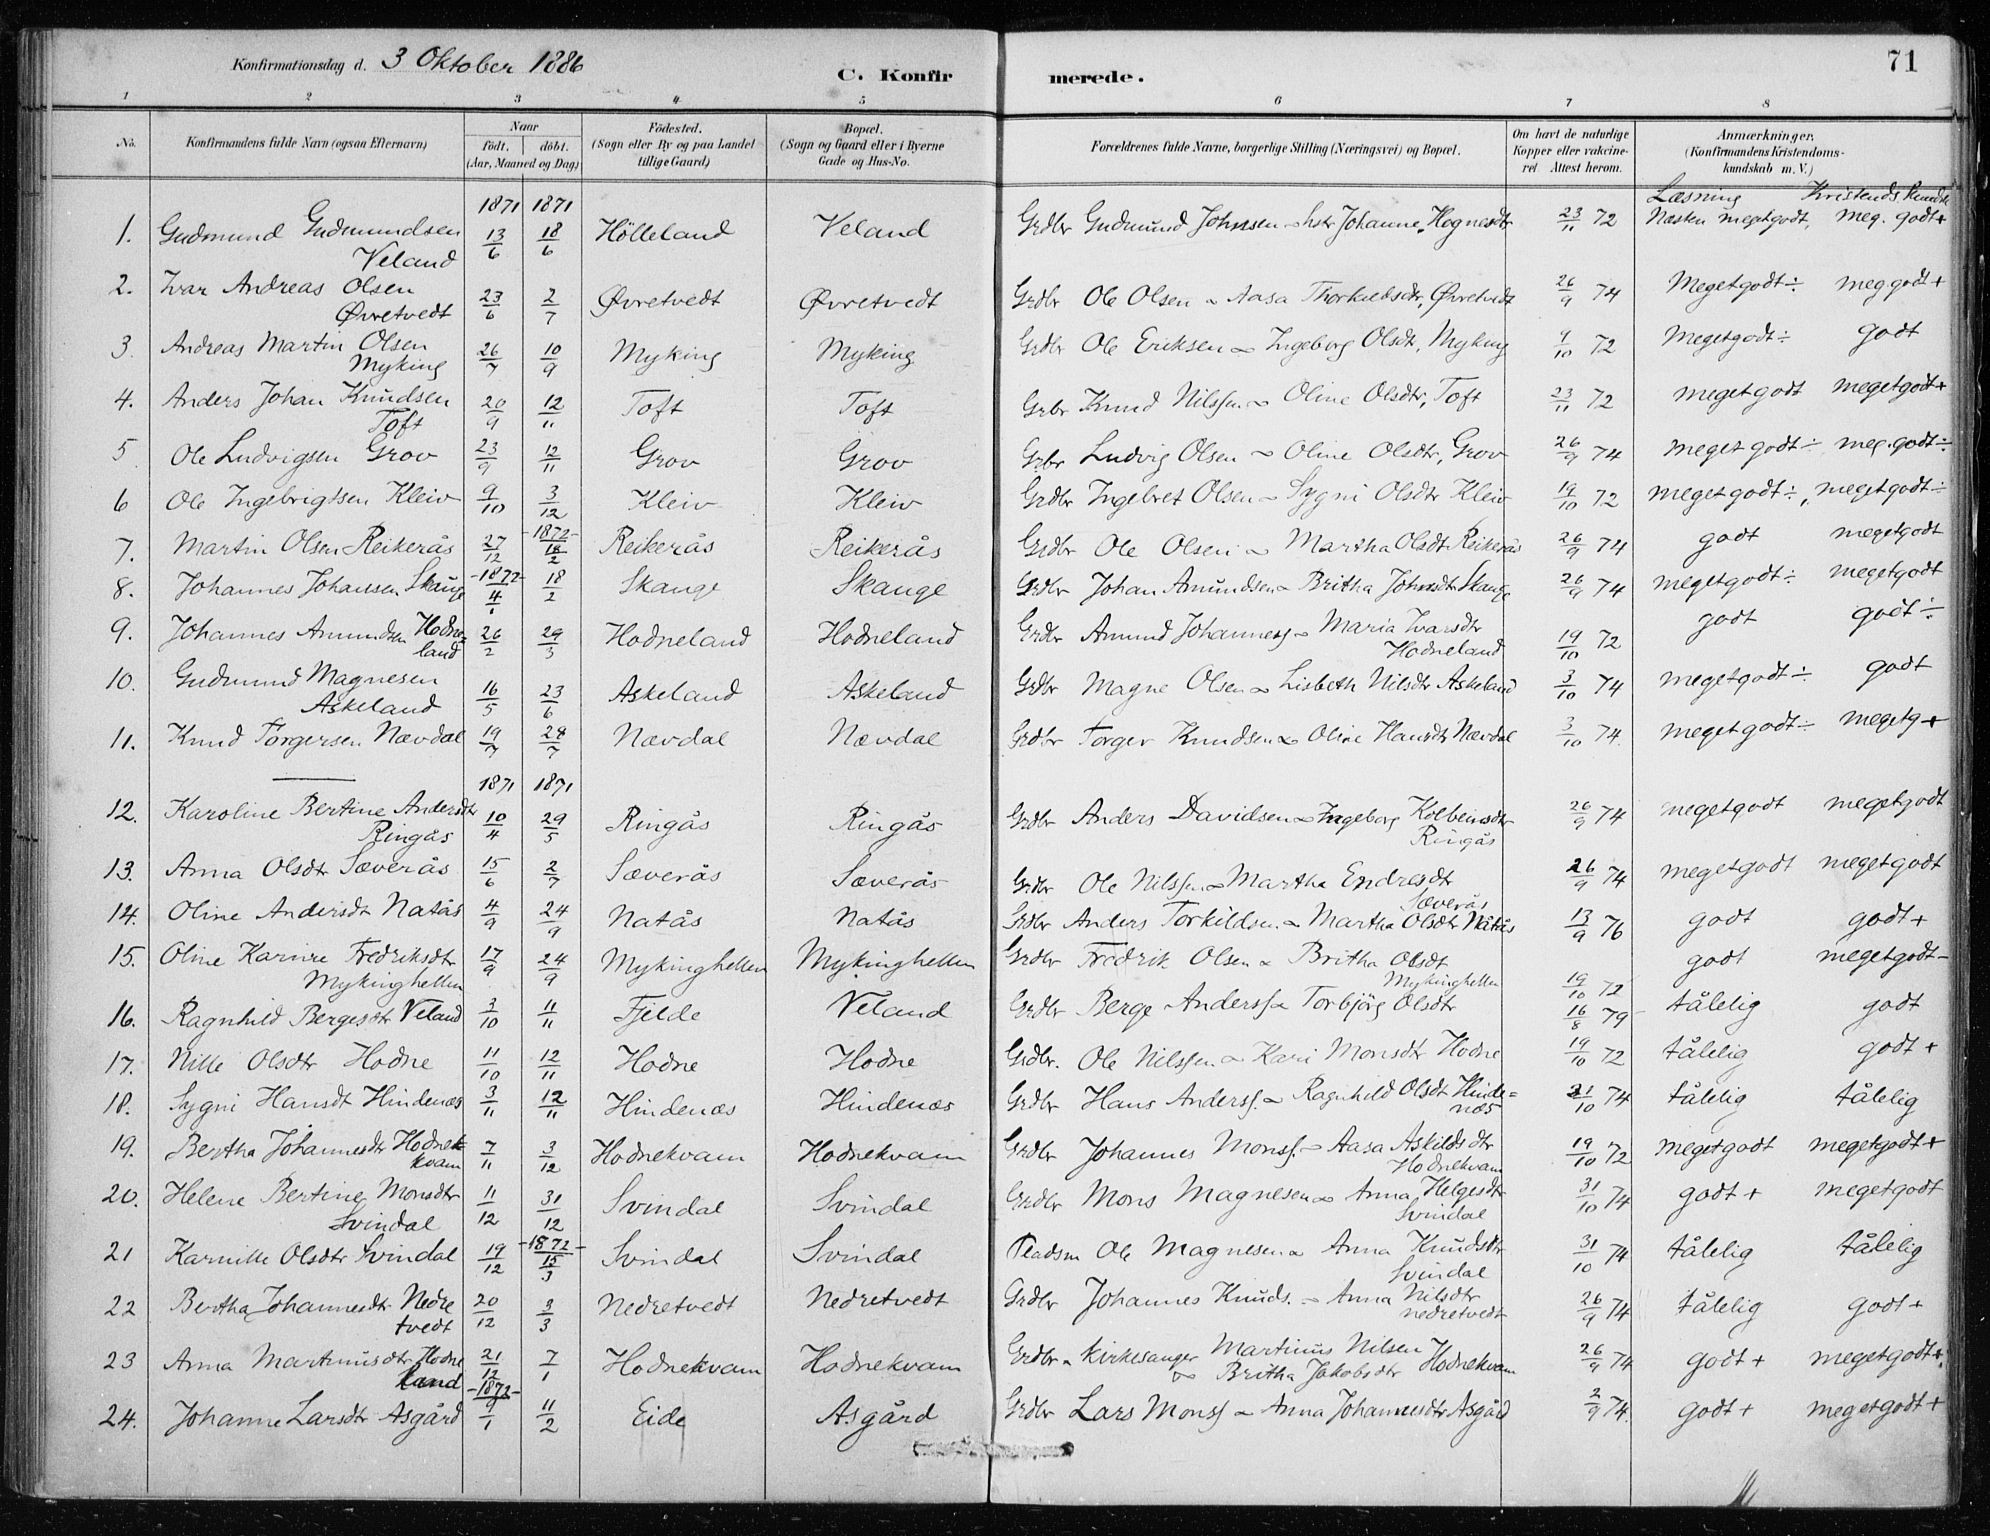 Konfirmationsdag d. 3 Oktober 1886
C. Konfir merede. 71
1 2 3 4 5 6 7 8
No. Konfirmandens fulde Navn (ogsaa Efternavn) Naar født. døbt. (Aar, Maaned og Dag) Fødested. (Sogn eller By og paa Landet tillige Gaard) Bopæl. (Sogn og Gaard eller i Byerne Gade og Hus-No. Forældrenes fulde Navne, borgerlige Stilling (Næringsvei) og Bopæl. Om havt de naturlige Kopper eller vakcineret. Attest herom. Anmærkninger. (Konfirmandens Kristendomskundskab m. V.)
1871 1871 Læsning Kristends Kundsk
1. Gudmund Gudmundsen Veland 13/6 18/6 Hölleland Veland Grdbr Gudmund Johnsen Johanne Hognesdtr 23/11 72 Næsten megetgodt, meg. godt+
2. Ivar Andreas Olsen Øvretvedt 23/6 2/7 Øvretvedt Øvretvedt Grdbr Ole Olsen & Aasa Thorkildsdtr, Øvretvedt 26/9 74 Megetgodt ÷ meg godt+
3. Andreas Martin Olsen Myking 26/7 10/9 Myking Myking Grdbr Ole Eriksen & Ingeborg Olsdtr, Myking 9/10 72 Megetgodt ÷ godt
4. Anders Johan Knudsen Toft 20/9 12/11 Toft Toft Grbr Knud Nilssen & Oline Olsdtr, Toft 23/11 72 megetgodt megetgodt+
5 Ole Ludvigsen Grov 23/9 12/11 Grov Grov Grbr Ludvig Olsen & Oline Olsdtr, Grov 26/9 74 megetgodt ÷ meg. godt ÷
6 Ole Ingebrigtsen Kleiv 9/10 3/12 Kleiv Kleiv Grdbr Ingebret Olsen & Sygni Olsdtr Kleiv 19/10 72 megetgodt ÷, megetgodt ÷
7. Martin Olsen Reikerås 27/12 -1872- 18/2 Reikerås Reikerås Grdbr Ole Olsen & Martha Olsdt Reikerås 26/9 74 godt megetgodt
8. Johannes Johansen Skauge -1872- 4/1 18/2 Skauge Skauge Grdbr Johan Amundsen & Britha Johnsdtr Skauge 26/9 74 megetgodt ÷ megetgodt
9. Johannes Amundsen Hodneland 26/2 29/3 Hodneland Hodneland Grdbr Amund Johanness & Maria Ivarsdtr Hodneland 19/10 72 godt godt ÷
10. Gudmund Magnesen Askeland 16/5 23/6 Askeland Askeland Grdbr Magne Olsen & Lisbeth Nilsdtr Askeland 3/10 74 megetgodt ÷ godt
11. Knud Torgersen Nævdal 19/7 28/7 Nævdal Nævdal Grdbr Torger Knudsen & Oline Hansdtr Nævdal 3/10 74. megetgodt ÷ megetg +
1871 1871
12. Karoline Bertine Andersdtr Ringås 10/4 29/5 Ringås Ringås Grdbr Anders Davidsen & Ingeborg Kolbeinsdtr Ringås 26/9 74 megetgodt megetgodt
13. Anna Olsdtr Sæverås 15/6 2/7 Sæverås Sæverås Grdbr Ole Nilssen & Martha Endresdt Sæverås 26/9 74 megetgodt megetgodt
14. Oline Andersdt Natås 4/9 24/9 Natås Natås Grdbr Anders Torkildsen & Martha Olsdtr Natås 13/9 76 godt godt+
15. Oline Karine Fredriksdtr Mykinghellen 17/9 24/9 Mykinghellen Mykinghellen Grdbr Fredrik Olsen & Britha Olsdt Mykinghellen 19/10 72 godt megetgodt-
16. Ragnhild Bergesdtr Veland 3/10 11/11 Fjelde Veland Grdbr Berge Anderss & Torbjörg Olsdtr 16/8 79 tålelig godt
17. Nille Olsdtr Hodne 11/10 12/11 Hodne Hodne Grdbr. Ole Nilssen & Kari Monsdtr Hodne 19/10 72 tålelig godt +
18. Sygni Hansdt Hindenæs 3/11 12/11 Hindenæs Hindenæs Grdbr Hans Anderss. & Ragnhild Olsdt Hindenæs 31/10 74 tålelig tålelig
19. Bertha Johannesdtr Hodnekvam 7/11 3/12 Hodnekvam Hodnekvam Grdbr Johannes Monss. & Aasa Askildsdtr Hodnekvam 19/10 72 megetgodt megetgodt+
20. Helene Bertine Monsdtr Svindal 11/12 31/12 Svindal Svindal Grdbr Mons Magnesen & Anna Helgesdtr Svindal 31/10 74 godt + megetgodt
21 Karnille Olsdtr Svindal 19/12 -1872- 15/3 Svindal Svindal Pladsm Ole Magnesen & Anna Knudsdtr Svindal 31/10 74 tålelig tålelig
22 Bertha Johannesdtr Nedretvedt 20/12 3/3 Nedretvedt Nedretvedt Grdbr Johannes Knuds. & Anna Nilsdtr Nedretvedt 26/9 74 tålelig godt+
23 Anna Martinusdtr Hodneland 21/12 7/1 Hodnekvam Hodnekvam Grdbr & Kirkesanger Martinus Nilsen & Britha Jakobsdtr Hodnekvam 26/9 74 godt + megetgodt+
24. Johanne Larsdtr Asgård -1872- 9/1 11/2 Eide Asgård Grdbr Lars Monss & Anna Johannesdtr Asgård 2/9 74. godt + megetgodt+